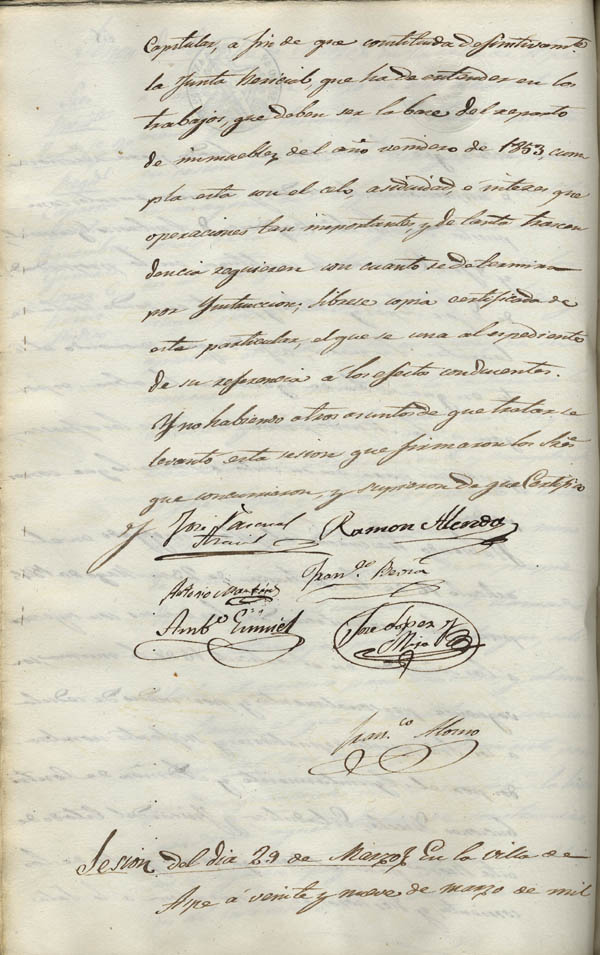 Capitular, a fin de que contituida definitivamte
la Junta Pericial, que ha de entender en los
trabajos, que deben ser la bace del reparto
de inmuebles del año venidero de 1853, cum
pla esta con el celo, asiduidad, e interes que
operaciones tan importantes y de tanta trascen
dencia requieren con cuanto se determina
por Yntruccion; librese copia certificada de
este particular, el que se una al espediente
de su referencia á los efectos conducentes.
Y no habiendo otros asuntos de que tratar se
levanto esta sesion que firmaron los Sres
que concurrieron, y supieron de que Certifico
José Pascual Ramon Alenda
Antonio Martinez Franco
Ambo José Lopez y
Mira
Franco Alonso
Sesion del dia 29 de Marzo En la villa de
Aspe á veinte y nueve de marzo de mil